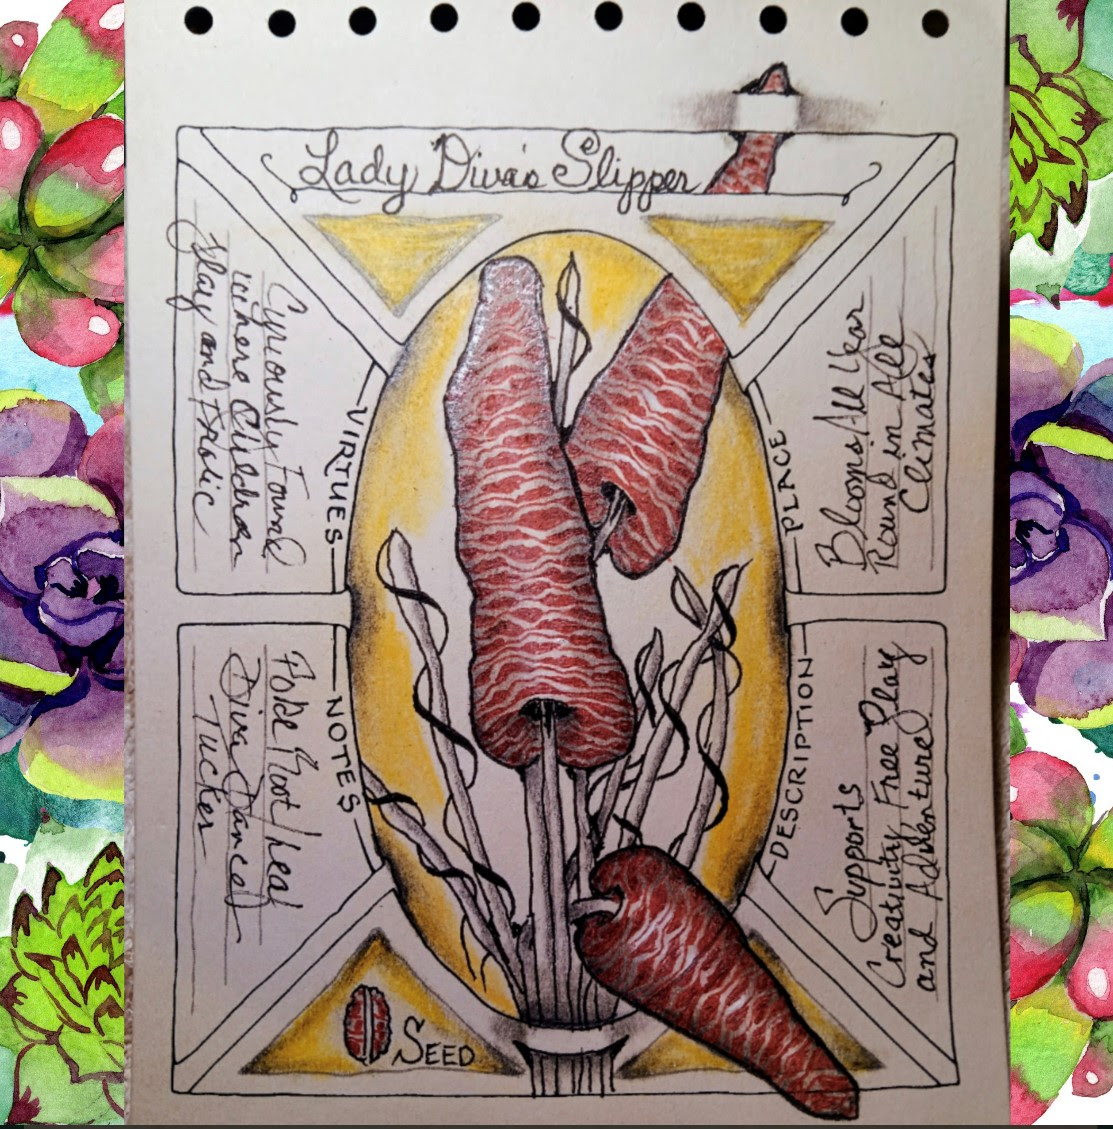 Lady Diva's Slipper
VIRTUES
Curiously Found
Where Children
Play and Frolic
PLACE
Blooms All Year
Round in All
Climates
NOTES
Poke Root/Leaf
Diva Dance
Tucker
DESCRIPTION
Supports
Creativity, Free Play
and Adventure
SEED